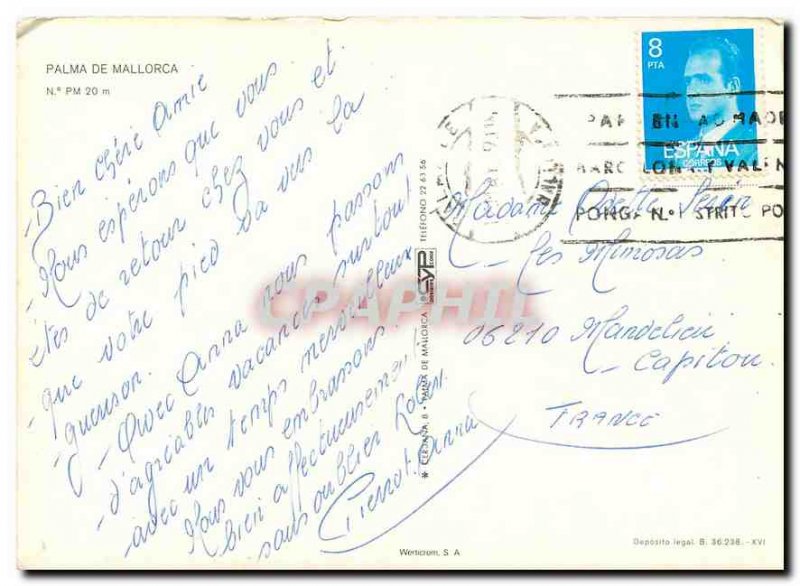 PALMA DE MALLORCA
N.º PM 20 m
- Bien chère Amie
- Nous espérons que vous
êtes de retour chez vous et
- que votre pied va vers la
guérison.
- Avec Anna nous passons
d'agréables vacances surtout
avec un temps merveilleux.
Nous vous embrassons
bien affectueusement
sans oublier
Pierrot. Anna
8
PTA
ESPAÑA
CORREOS
BARCELONA VALEN
PONGA N.º DISTRITO PO
Madame Odette
Les Mimosas
06210 Mandelieu
Capitou
FRANCE
CERDAÑA, 8 • PALMA DE MALLORCA
CYP
TELÉFONO 22 63 56
CPAPHIL
Werticrom, S. A.
Depósito legal. B. 36.238. - XVI